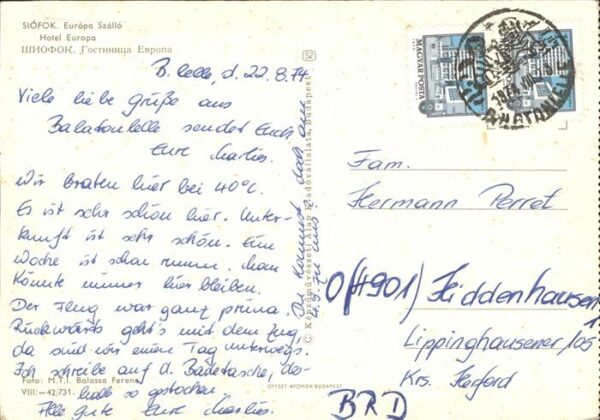 SIÓFOK. Európa Szálló
Hotel Europa
ШИОФОК. Гостиница Европа
B. lelle, d. 22.8.74.
Viele liebe Grüße aus
Balatonlelle sendet Euch
Eure Marlies.
Wir braten hier bei 40°C.
Es ist sehr schön hier. Unter-
kunft ist sehr schön. Eine
Woche ist schon rum. Man
könnte immer hier bleiben.
Der Flug war ganz prima.
Rückwärts geht's mit dem Zug,
da sind wir einen Tag unterwegs.
Ich schreibe auf d. Badetasche, des-
halb so gestochen.
Alle gute Eure Marlies.
Ihr kommt doch am
Foto: M.T.I. Balassa Ferenc
VIII:—42/731.
OFFSET-NYOMDA BUDAPEST
C. Képzőművészeti Alap Kiadóvállalata, Budapest
MAGYAR POSTA
BALATONLELLE
Fam.
Hermann Perret
(4901) Hiddenhausen 1
Lippinghausener 105
Krs. Herford
BRD